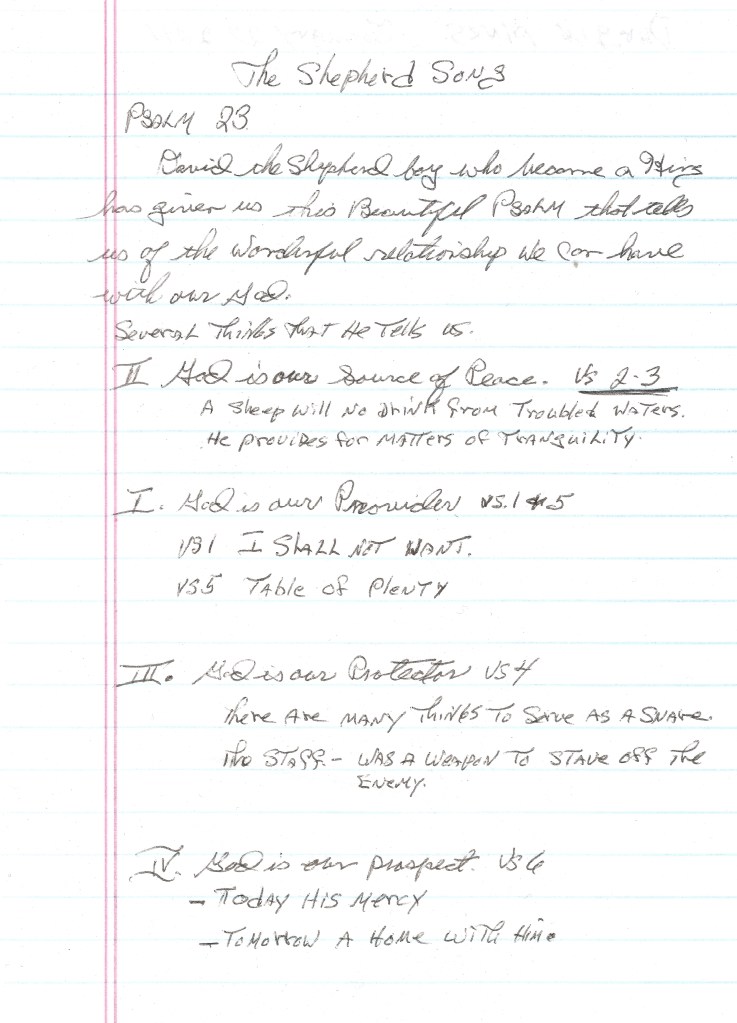 The Shepherd Song
Psalm 23
David the Shepherd boy who became a King
has given us this Beautiful Psalm that tells
us of the wonderful relationship we can have
with our God.
Several Things that He Tells us.
II God is our Source of Peace. vs 2-3
A Sheep will no drink from Troubled waters.
He provides for matters of Tranquility.
I. God is our Provider vs. 1 & 5
VS1 I shall not want.
VS5 Table of Plenty
III. God is our Protector vs 4
There are many things to serve as a snare.
The Staff. - was a weapon to stave off the
Enemy.
IV. God is our prospect. vs 6
- Today His Mercy
- Tomorrow a Home with Him.